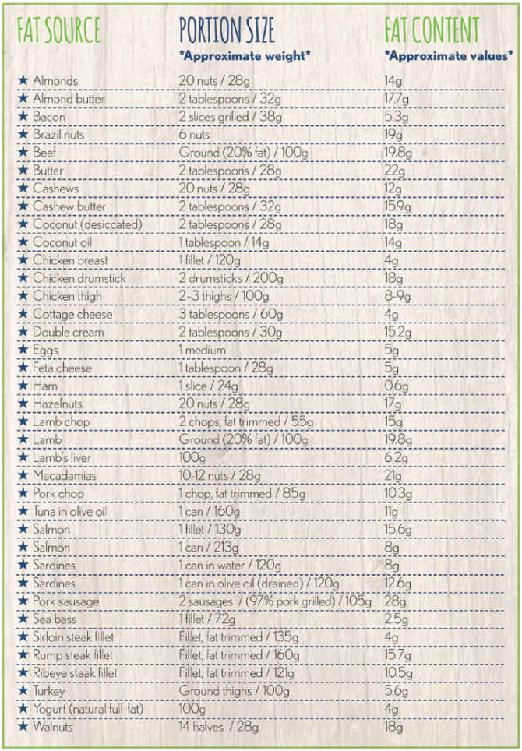 FAT SOURCE PORTION SIZE FAT CONTENT
*Approximate weight* *Approximate values*
★ Almonds 20 nuts / 28g 14g
★ Almond butter 2 tablespoons / 32g 17.7g
★ Bacon 2 slices grilled / 38g 5.3g
★ Brazil nuts 6 nuts 19g
★ Beef Ground (20% fat) / 100g 19.8g
★ Butter 2 tablespoons / 28g 22g
★ Cashews 20 nuts / 28g 12g
★ Cashew butter 2 tablespoons / 32g 15.9g
★ Coconut (desiccated) 2 tablespoons / 28g 18g
★ Coconut oil 1 tablespoon / 14g 14g
★ Chicken breast 1 fillet / 120g 4g
★ Chicken drumstick 2 drumsticks / 200g 18g
★ Chicken thigh 2-3 thighs / 100g 8-9g
★ Cottage cheese 3 tablespoons / 60g 4g
★ Double cream 2 tablespoons / 30g 15.2g
★ Eggs 1 medium 5g
★ Feta cheese 1 tablespoon / 28g 5g
★ Ham 1 slice / 24g 0.6g
★ Hazelnuts 20 nuts / 28g 17g
★ Lamb chop 2 chops, fat trimmed / 55g 15g
★ Lamb Ground (20% fat) / 100g 19.8g
★ Lamb's liver 100g 6.2g
★ Macadamias 10-12 nuts / 28g 21g
★ Pork chop 1 chop, fat trimmed / 85g 10.3g
★ Tuna in olive oil 1 can / 160g 11g
★ Salmon 1 fillet / 130g 15.6g
★ Salmon 1 can / 213g 8g
★ Sardines 1 can in water / 120g 8g
★ Sardines 1 can in olive oil (drained) / 120g 12.6g
★ Pork sausage 2 sausages / (97% pork grilled) / 105g 28g
★ Sea bass 1 fillet / 72g 2.5g
★ Sirloin steak fillet Fillet, fat trimmed / 135g 4g
★ Rump steak fillet Fillet, fat trimmed / 160g 15.7g
★ Ribeye steak fillet Fillet, fat trimmed / 121g 10.5g
★ Turkey Ground thighs / 100g 5.6g
★ Yogurt (natural full-fat) 100g 4g
★ Walnuts 14 halves / 28g 18g